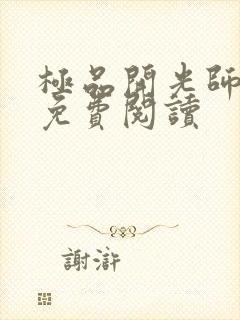 極品開光師
免費閱讀
謝滸